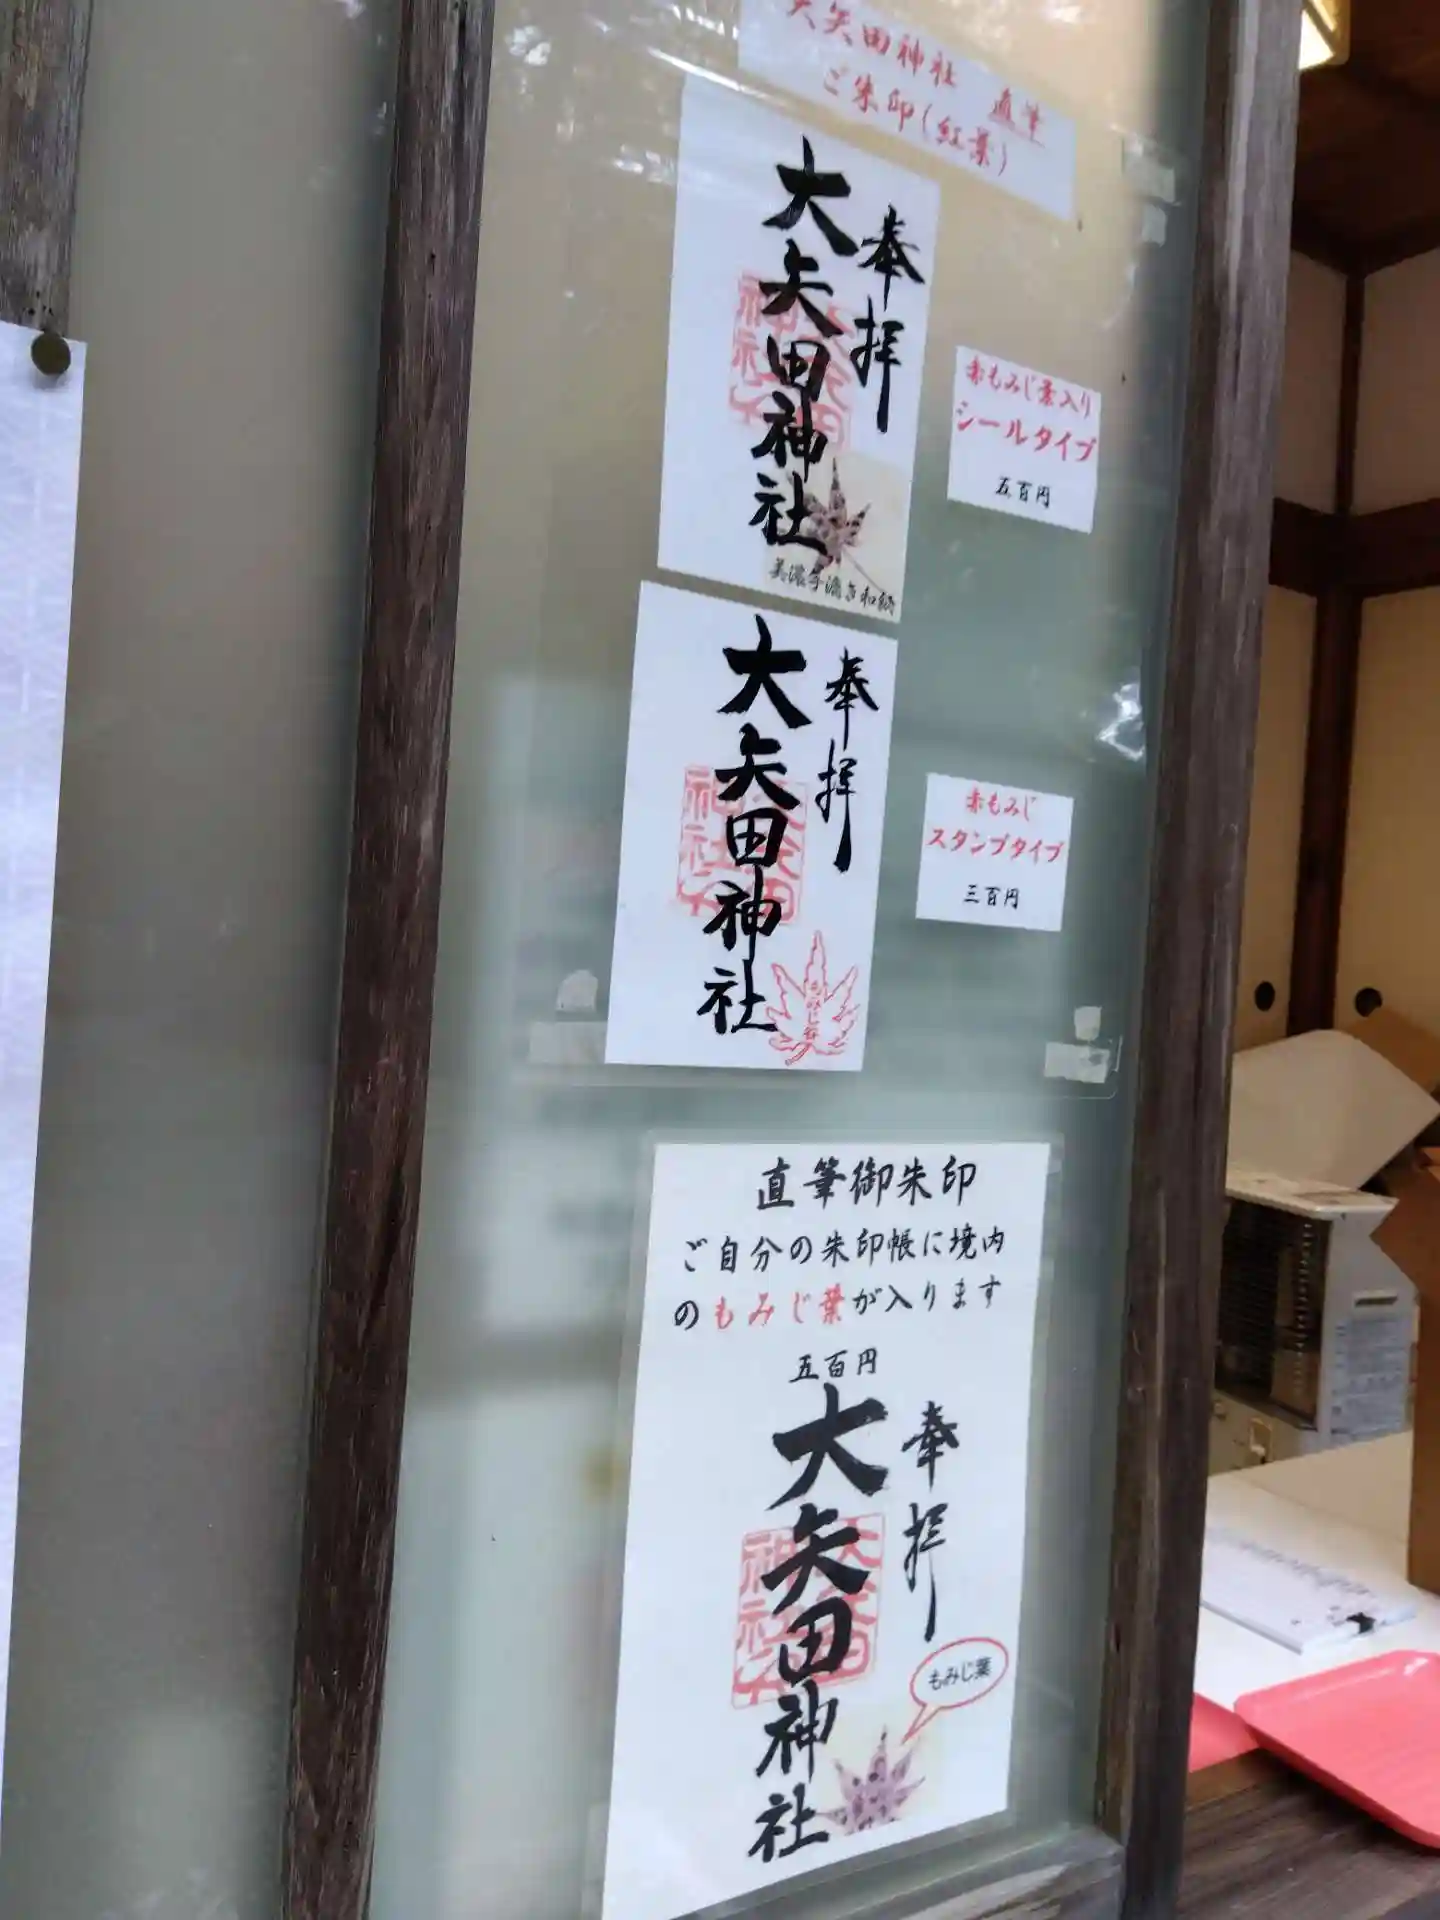 大矢田神社 直筆
ご朱印(紅葉)
奉拝
大矢田神社
美濃手漉き和紙
赤もみじ葉入り
シールタイプ
五百円
奉拝
大矢田神社
もみじ谷
赤もみじ
スタンプタイプ
三百円
直筆御朱印
ご自分の朱印帳に境内
のもみじ葉が入ります
五百円
奉拝
大矢田神社
もみじ葉